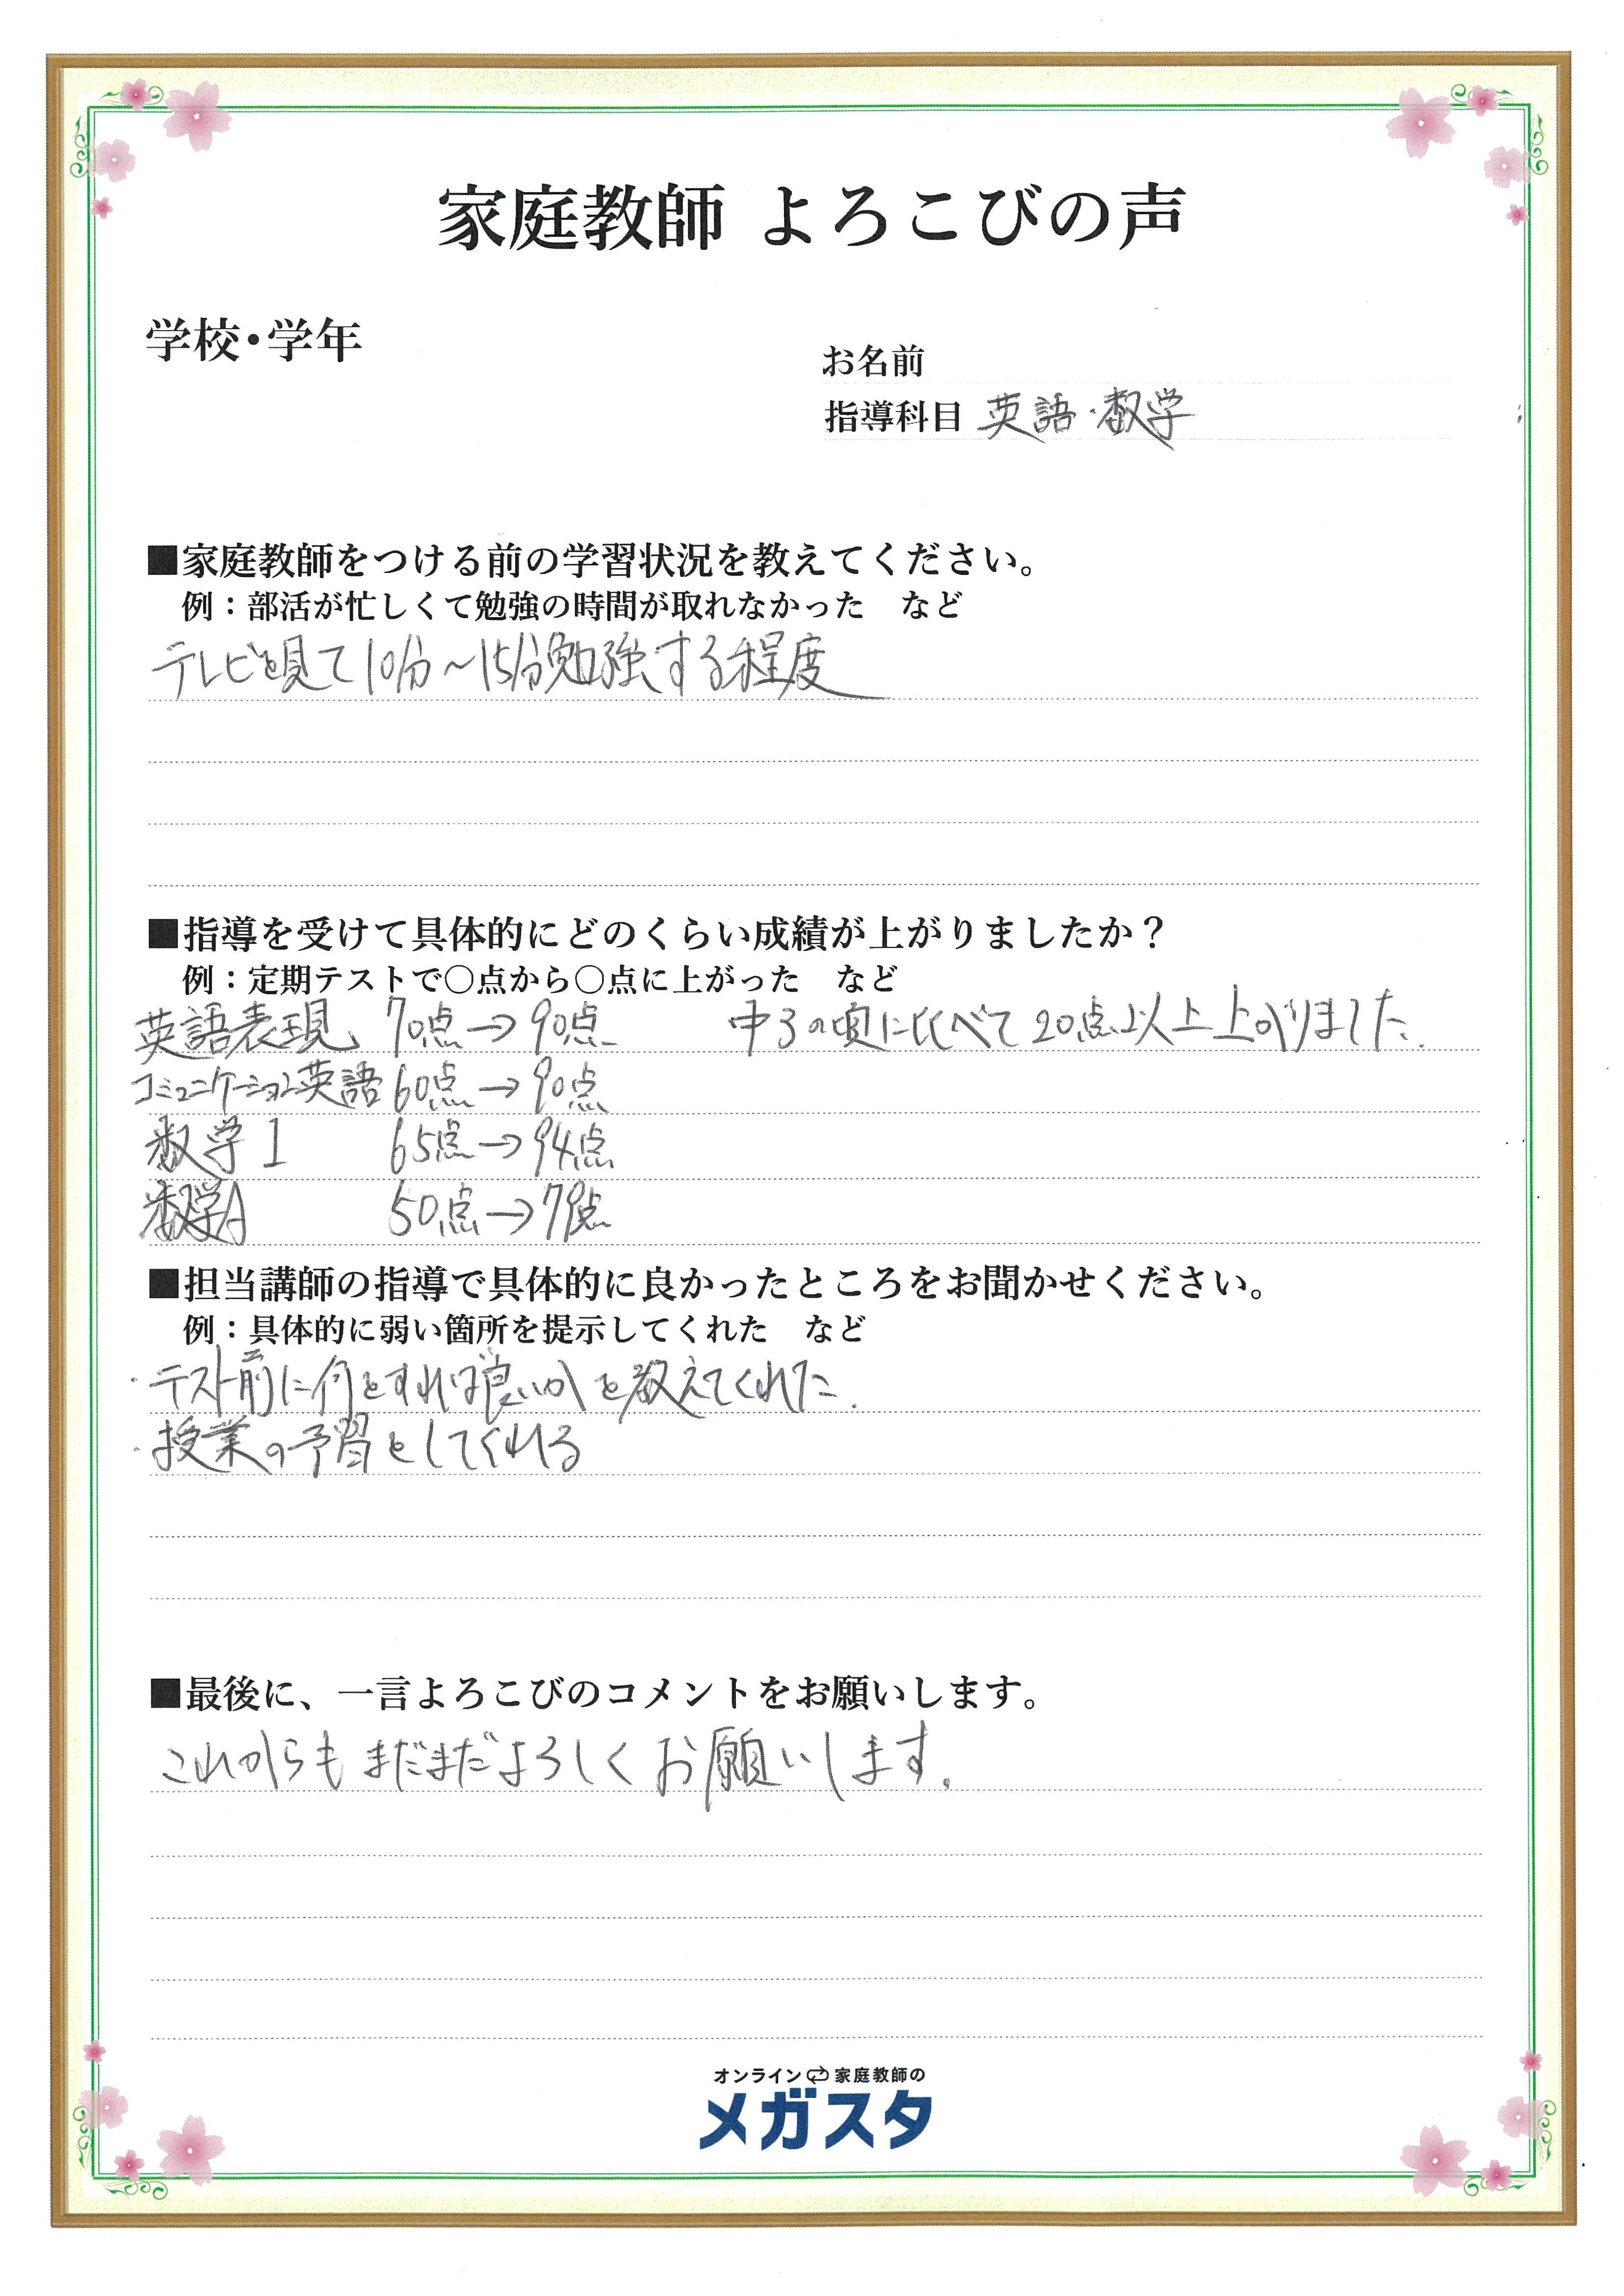 家庭教師 よろこびの声
学校・学年
お名前
指導科目 英語・数学
■家庭教師をつける前の学習状況を教えてください。
例：部活が忙しくて勉強の時間が取れなかった　など
テレビを見て10分〜15分勉強する程度
■指導を受けて具体的にどのくらい成績が上がりましたか？
例：定期テストで○点から○点に上がった　など
英語表現 70点→90点 中3の頃に比べて20点以上上がりました。
コミュニケーション英語 60点→90点
数学I 65点→94点
数学A 50点→79点
■担当講師の指導で具体的に良かったところをお聞かせください。
例：具体的に弱い箇所を提示してくれた　など
・テスト前に何をすれば良いかを教えてくれた。
・授業の予習をしてくれる
■最後に、一言よろこびのコメントをお願いします。
これからもまだまだよろしくお願いします。
オンライン家庭教師の
メガスタ